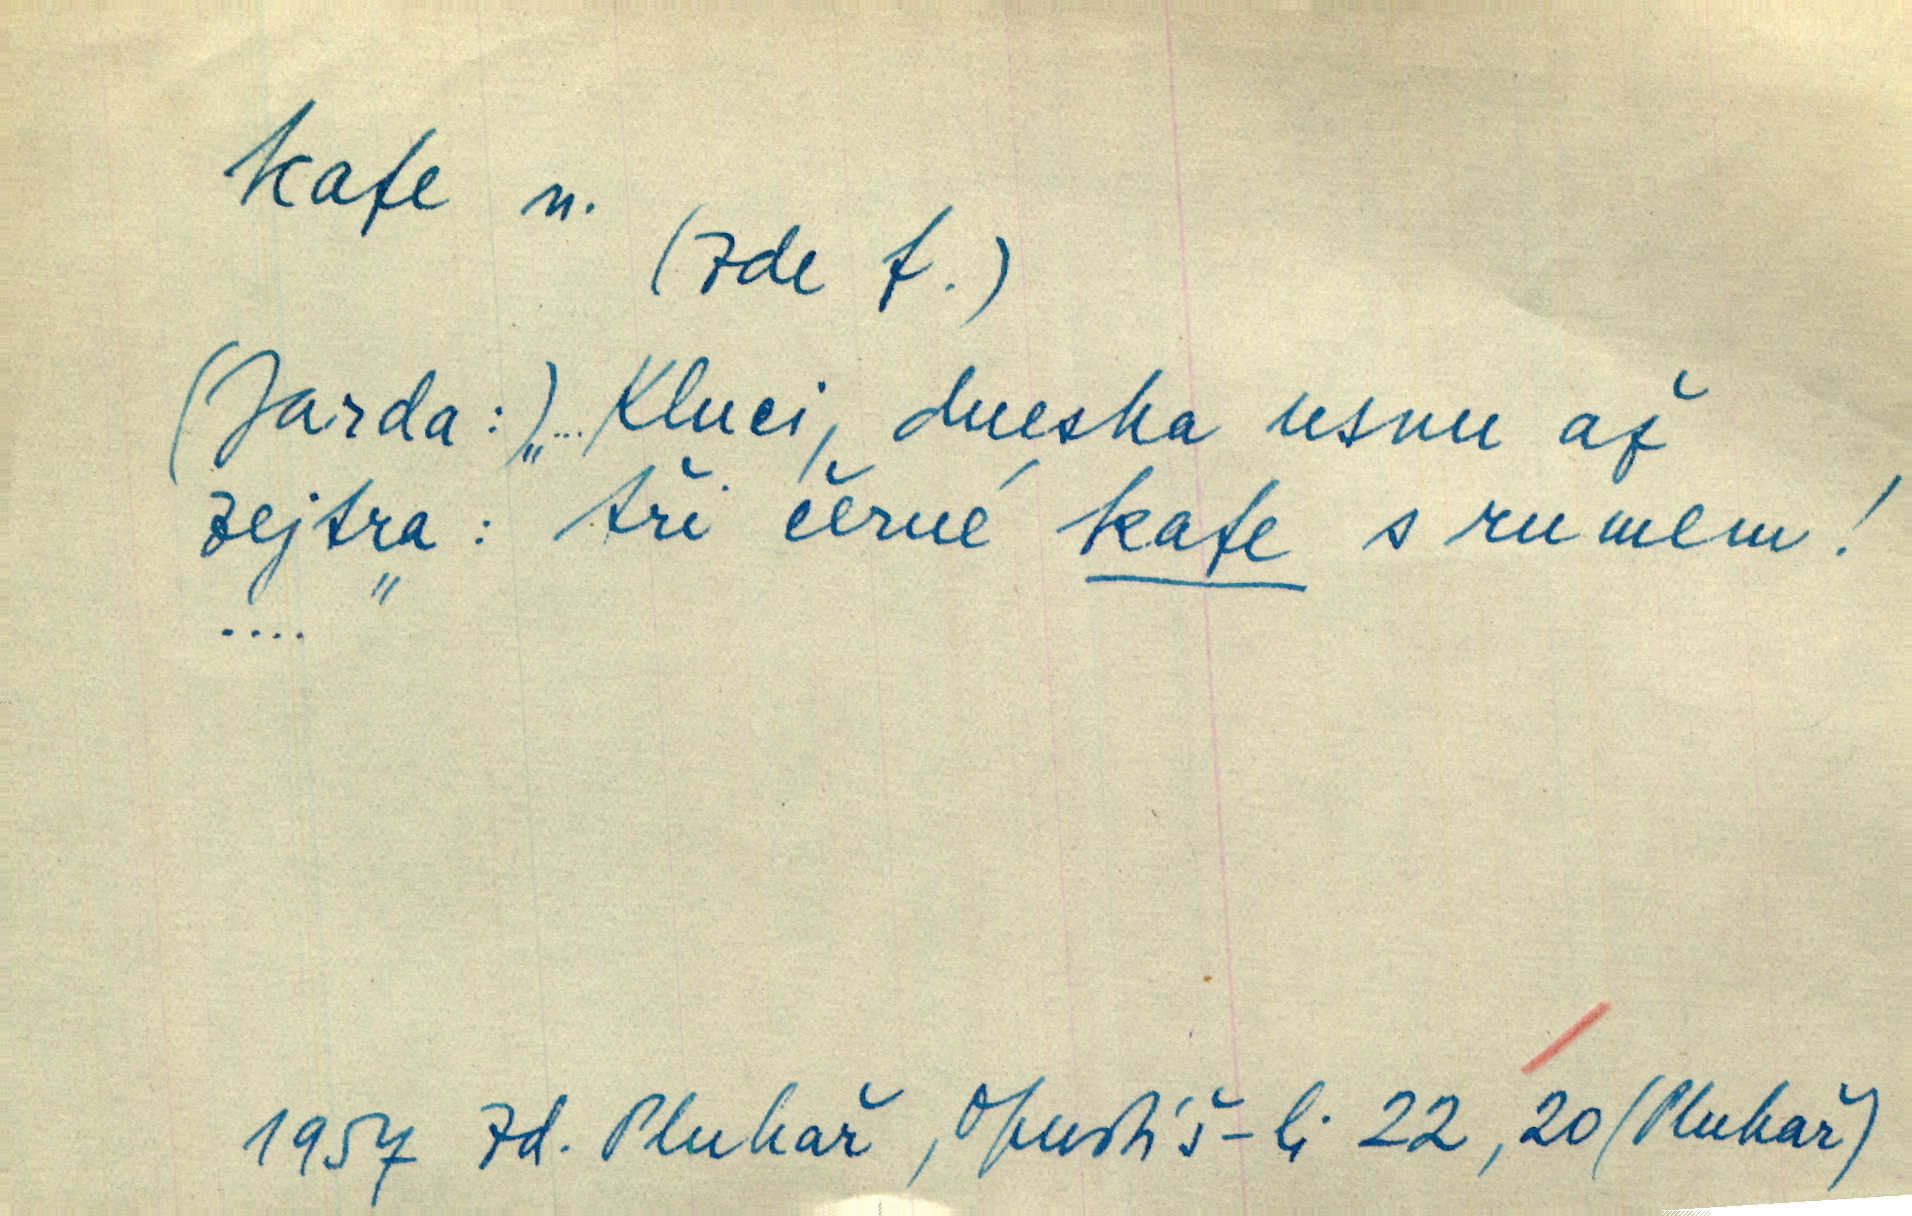 kafe n.
(zde f.)
(Jarda:) „... Kluci, dneska usnu až
zejtra: tři černé kafe s rumem!
.... "
1957 Zd. Pluhař, Opustíš-li 22, 20 (Pluhař)